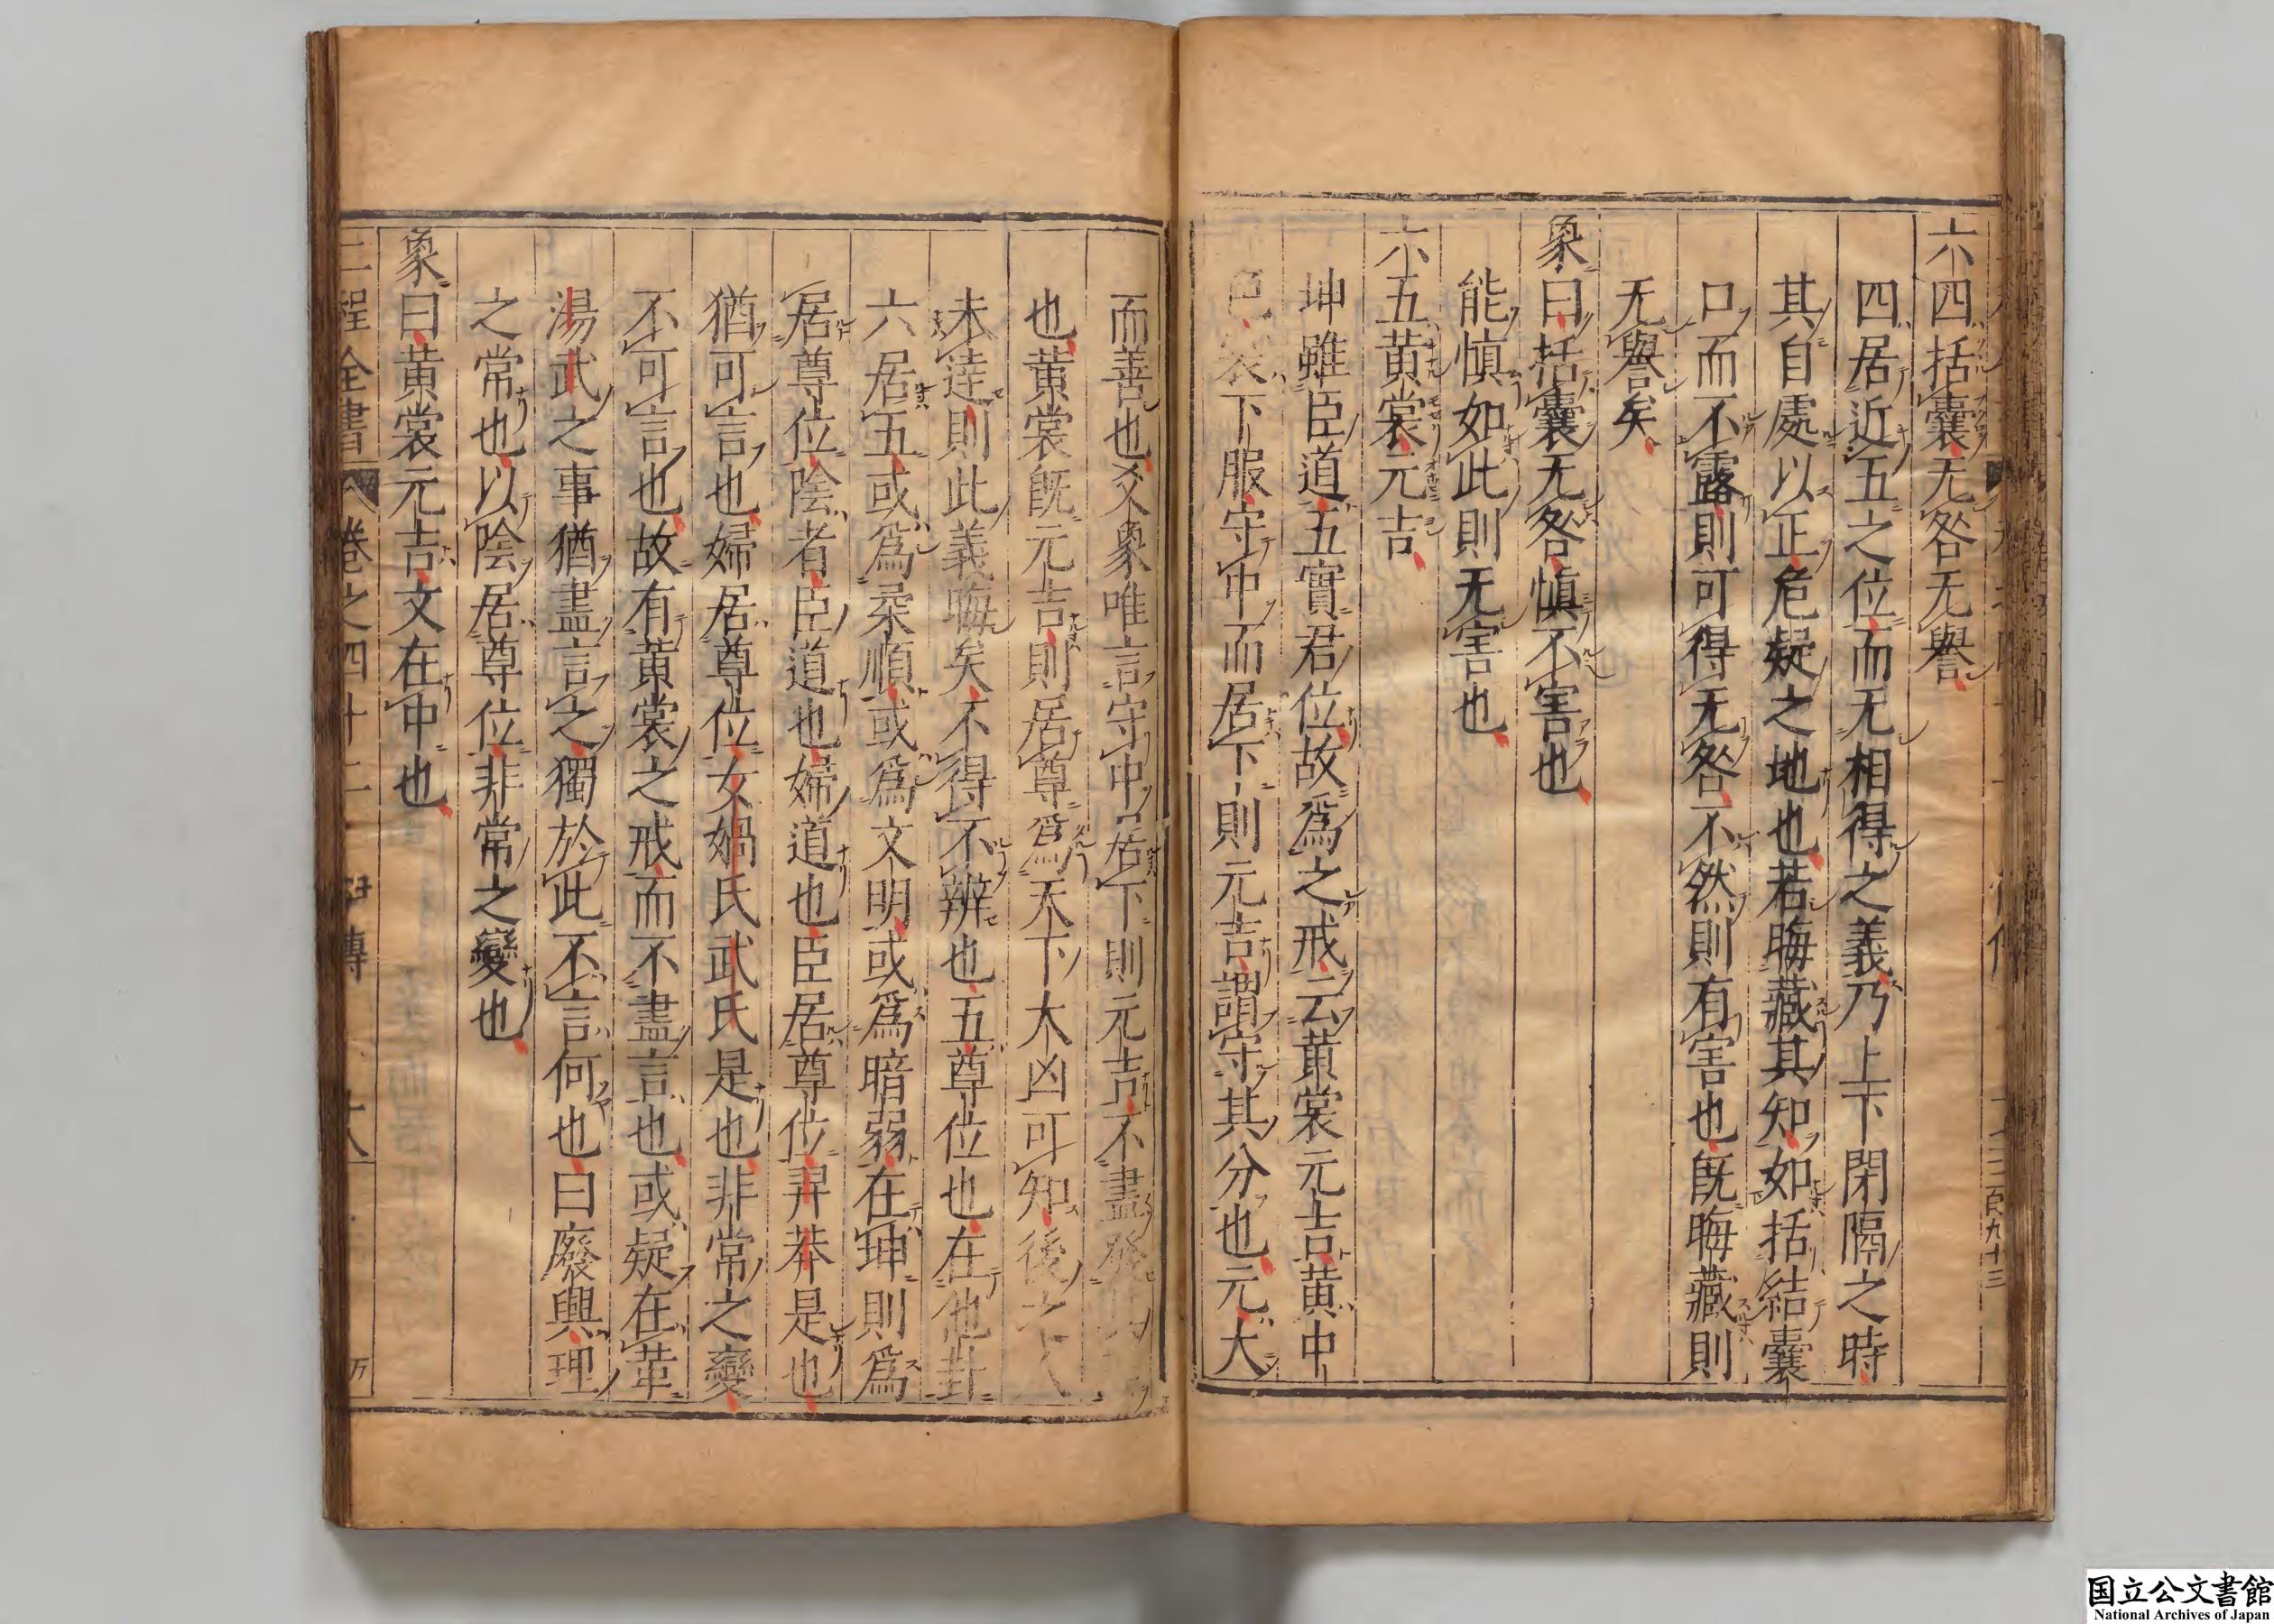 六四括囊无咎无譽
四居近五之位而无相得之義乃上下閉隔之時
其自處以正危疑之地也若晦藏其知如括結囊
口而不露則可得无咎不然則有害也既晦藏則
无譽矣
象曰括囊无咎愼不害也
能愼如此則无害也
六五黄裳元吉
坤雖臣道五實君位故爲之戒云黄裳元吉黄中
色裳下服守中而居下則元吉謂守其分也元大
而善也爻象唯言守中居下則元吉不盡發其
也黄裳既元吉則居尊爲天下大凶可知後之人
未達則此義晦矣不得不辨也五尊位也在他卦
六居五或爲柔順或爲文明或爲暗弱在坤則爲
居尊位陰者臣道也婦道也臣居尊位羿莽是也
猶可言也婦居尊位女媧氏武氏是也非常之變
不可言也故有黄裳之戒而不盡言也或疑在革
湯武之事猶盡言之獨於此不言何也曰廢興理
之常也以陰居尊位非常之變也
象曰黄裳元吉文在中也
二程全書 卷之四十二 易傳 十八
三百九十三
国立公文書館
National Archives of Japan